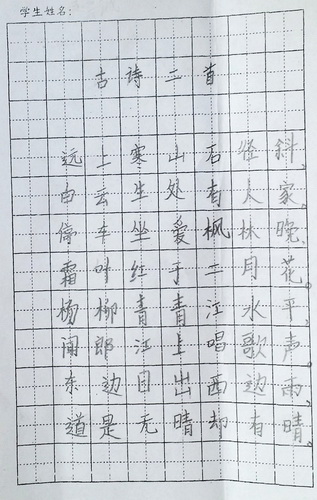 学生姓名:
古诗二首
远上寒山石径斜,
白云生处有人家。
停车坐爱枫林晚,
霜叶红于二月花。
杨柳青青江水平,
闻郎江上唱歌声。
东边日出西边雨,
道是无晴却有晴。